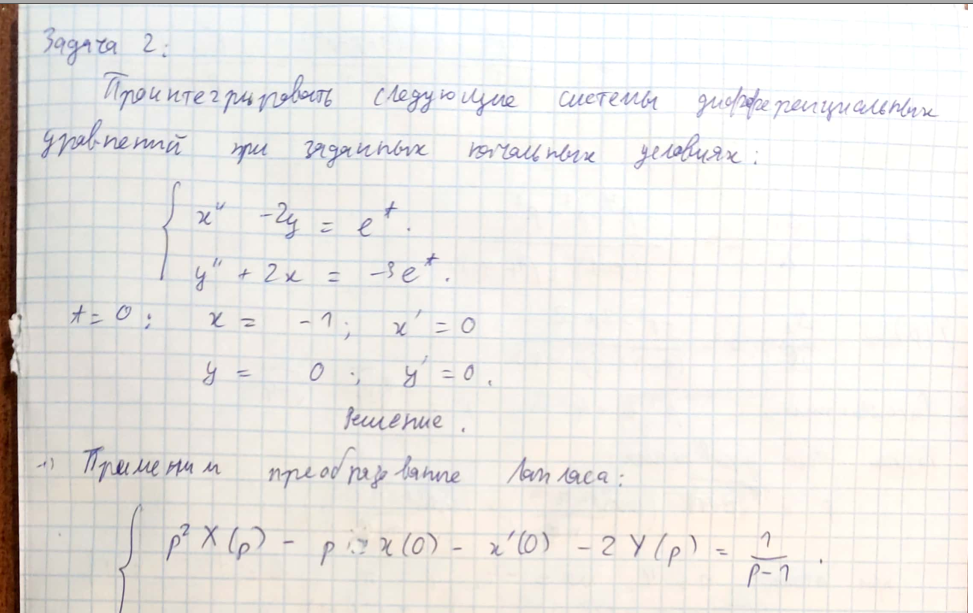 Задача 2:
Проинтегрировать следующие системы дифференциальных
уравнений при заданных начальных условиях:
x'' - 2y = e^t.
y'' + 2x = -3e^t.
t = 0: x = -1; x' = 0
y = 0; y' = 0.
Решение.
1) Применим преобразование Лапласа:
p² X(p) - p x(0) - x'(0) - 2 Y(p) = 1/(p-1).